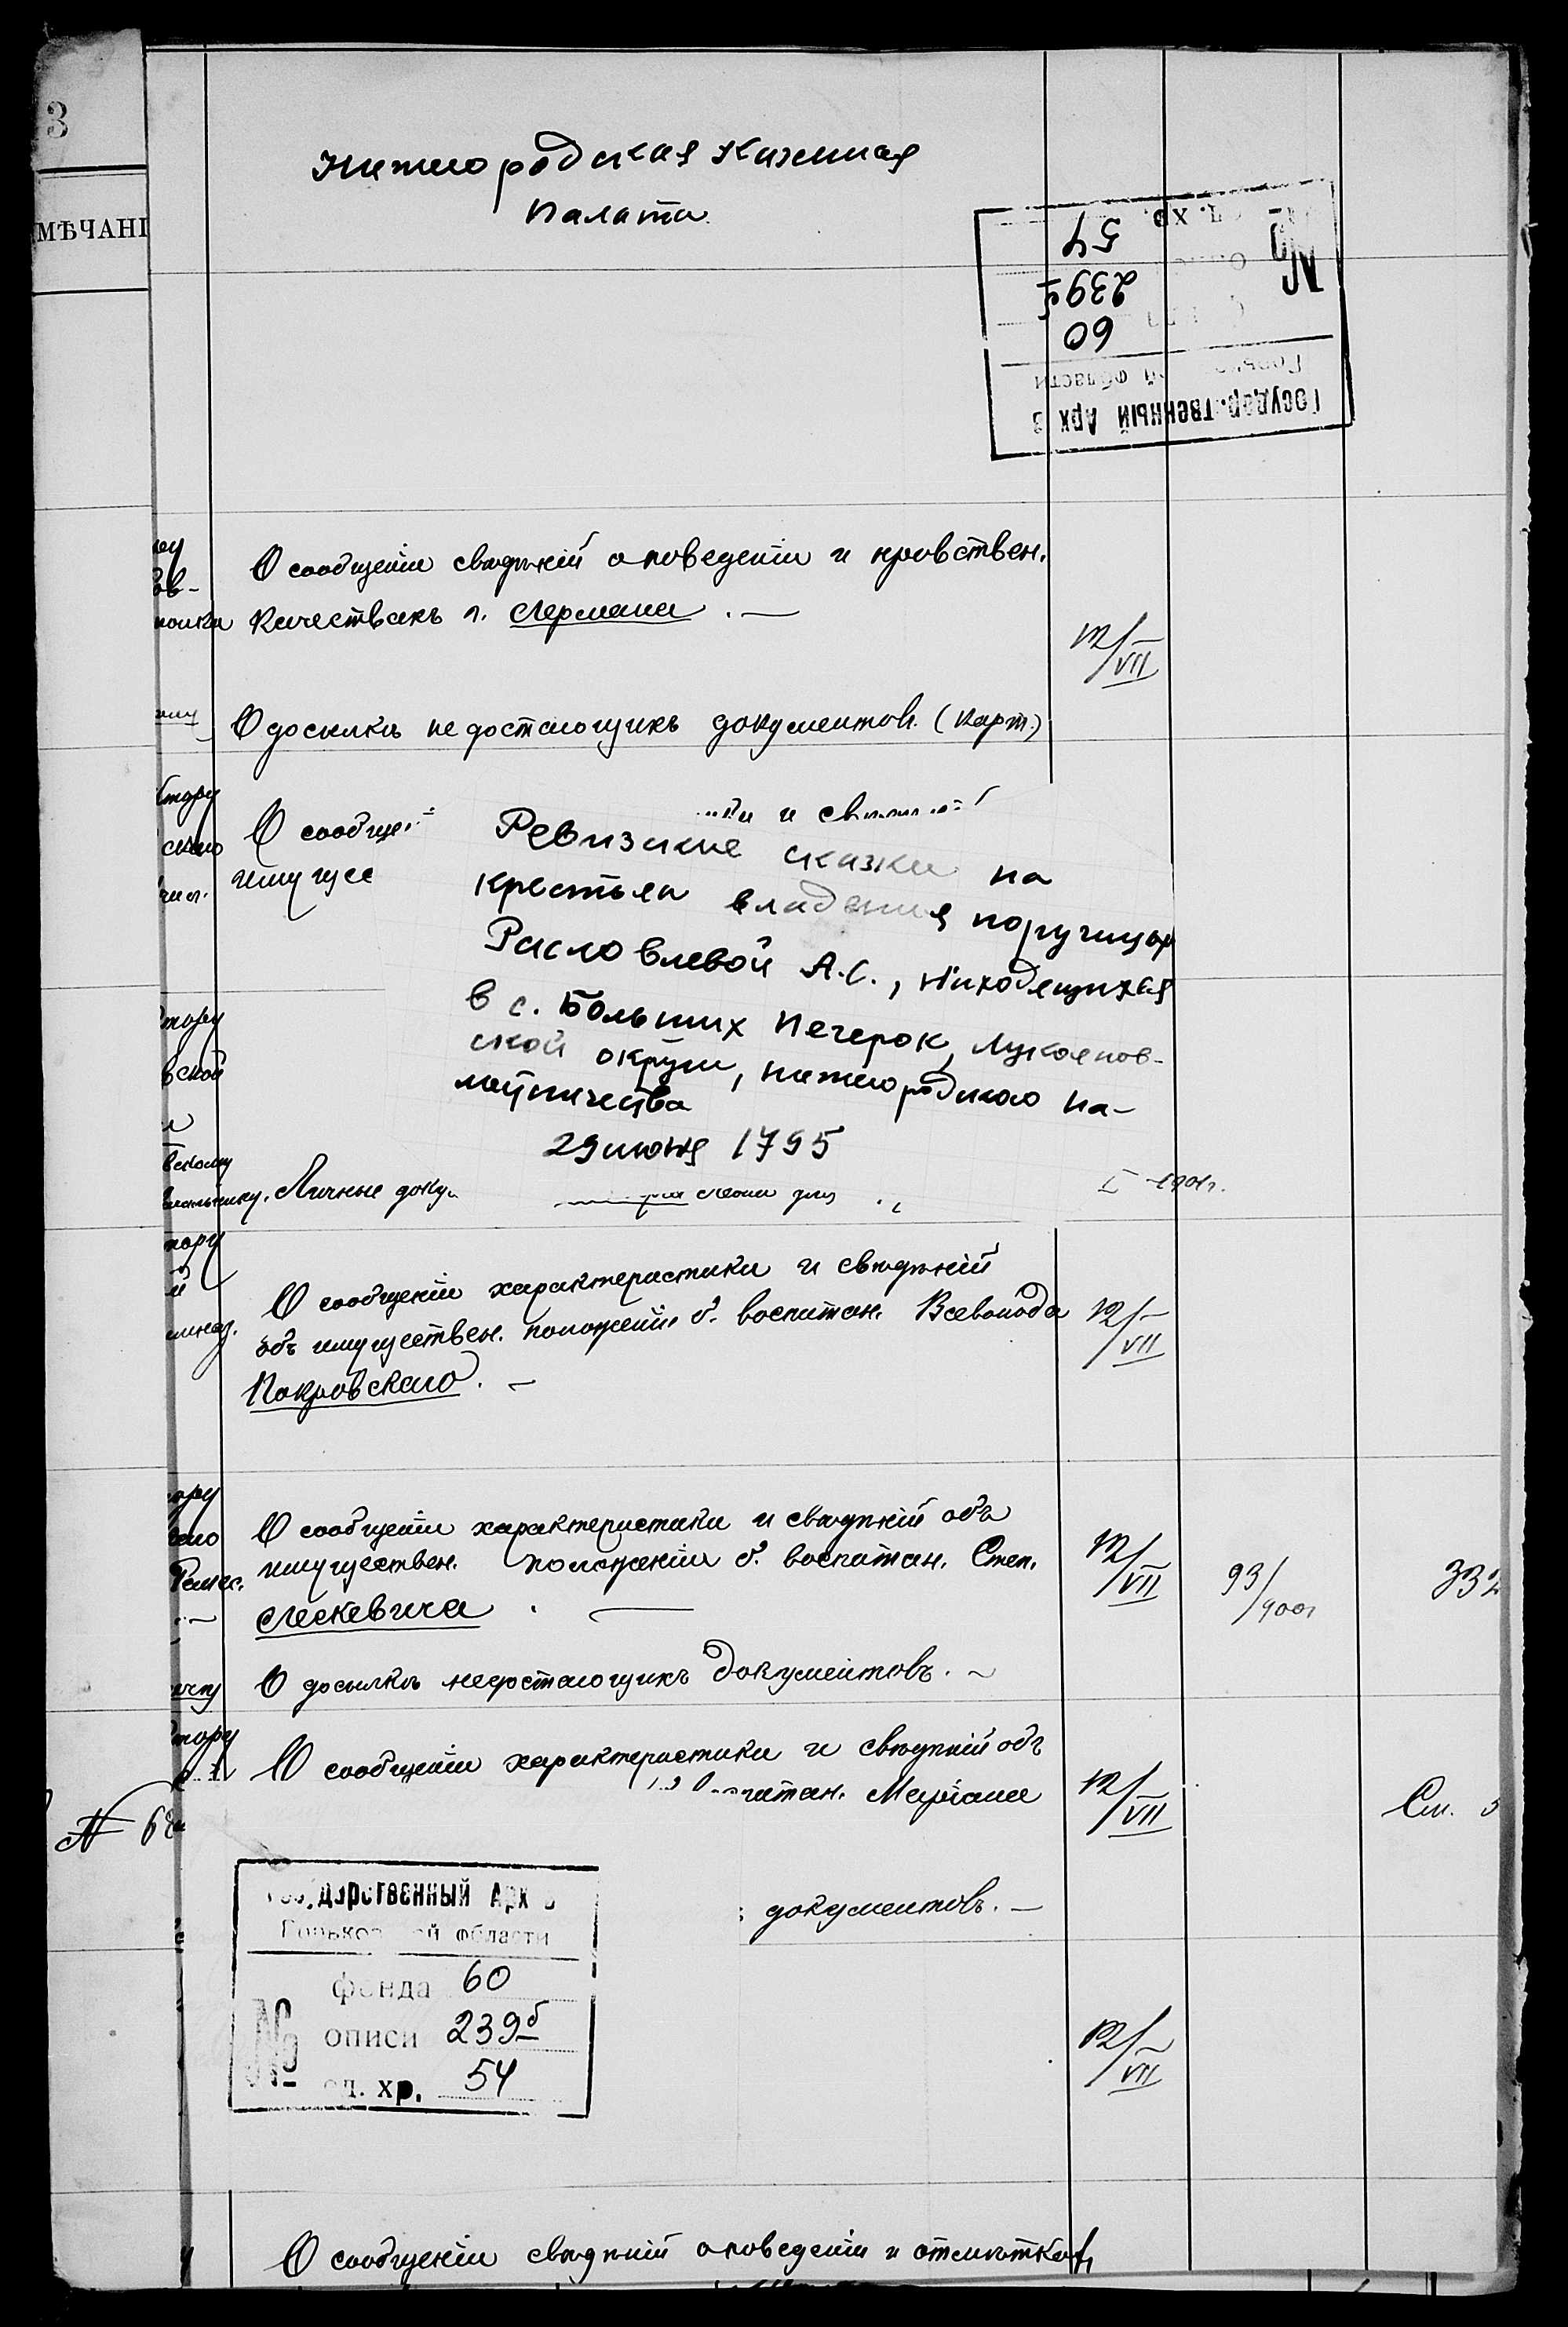 3
МѢЧАНІ
Нижегородская казенная
палата
Государственный Арх в
Горько й области
60
239б
54
№
д. хр.
О сообщеніи свѣдѣній о поведеніи и нравствен.
качествахъ г. Лермана . —
12/VII
О досылкѣ недостающихъ документов. (карт.)
О сообще
имуще
Ревизские сказки на
крестьян владения поручицы
Расловлевой А.С., находящихся
в с. Больших Печерок, Лукоянов-
ской округи, Нижегородского на-
местничества
29 июня 1795
Личные доку
I 1901г.
О сообщеніи характеристики и свѣдѣній
объ имуществен. положеніи б. воспитан. Всеволода
Покровскаго. —
12/VII
О сообщеніи характеристики и свѣдѣній объ
имуществен. положеніи б. воспитан. Степ.
Лескевича . —
12/VII
93/900г
332
О досылкѣ недостающихъ документовъ. —
О сообщеніи характеристики и свѣдѣній объ
питан. Маріана
12/VII
См.
№ 6
документовъ. —
дарственный Арх
Горько ой области
фонда 60
№ описи 239б
ед. хр. 54
12/VII
О сообщеніи свѣдѣній о поведеніи и отмѣткахъ